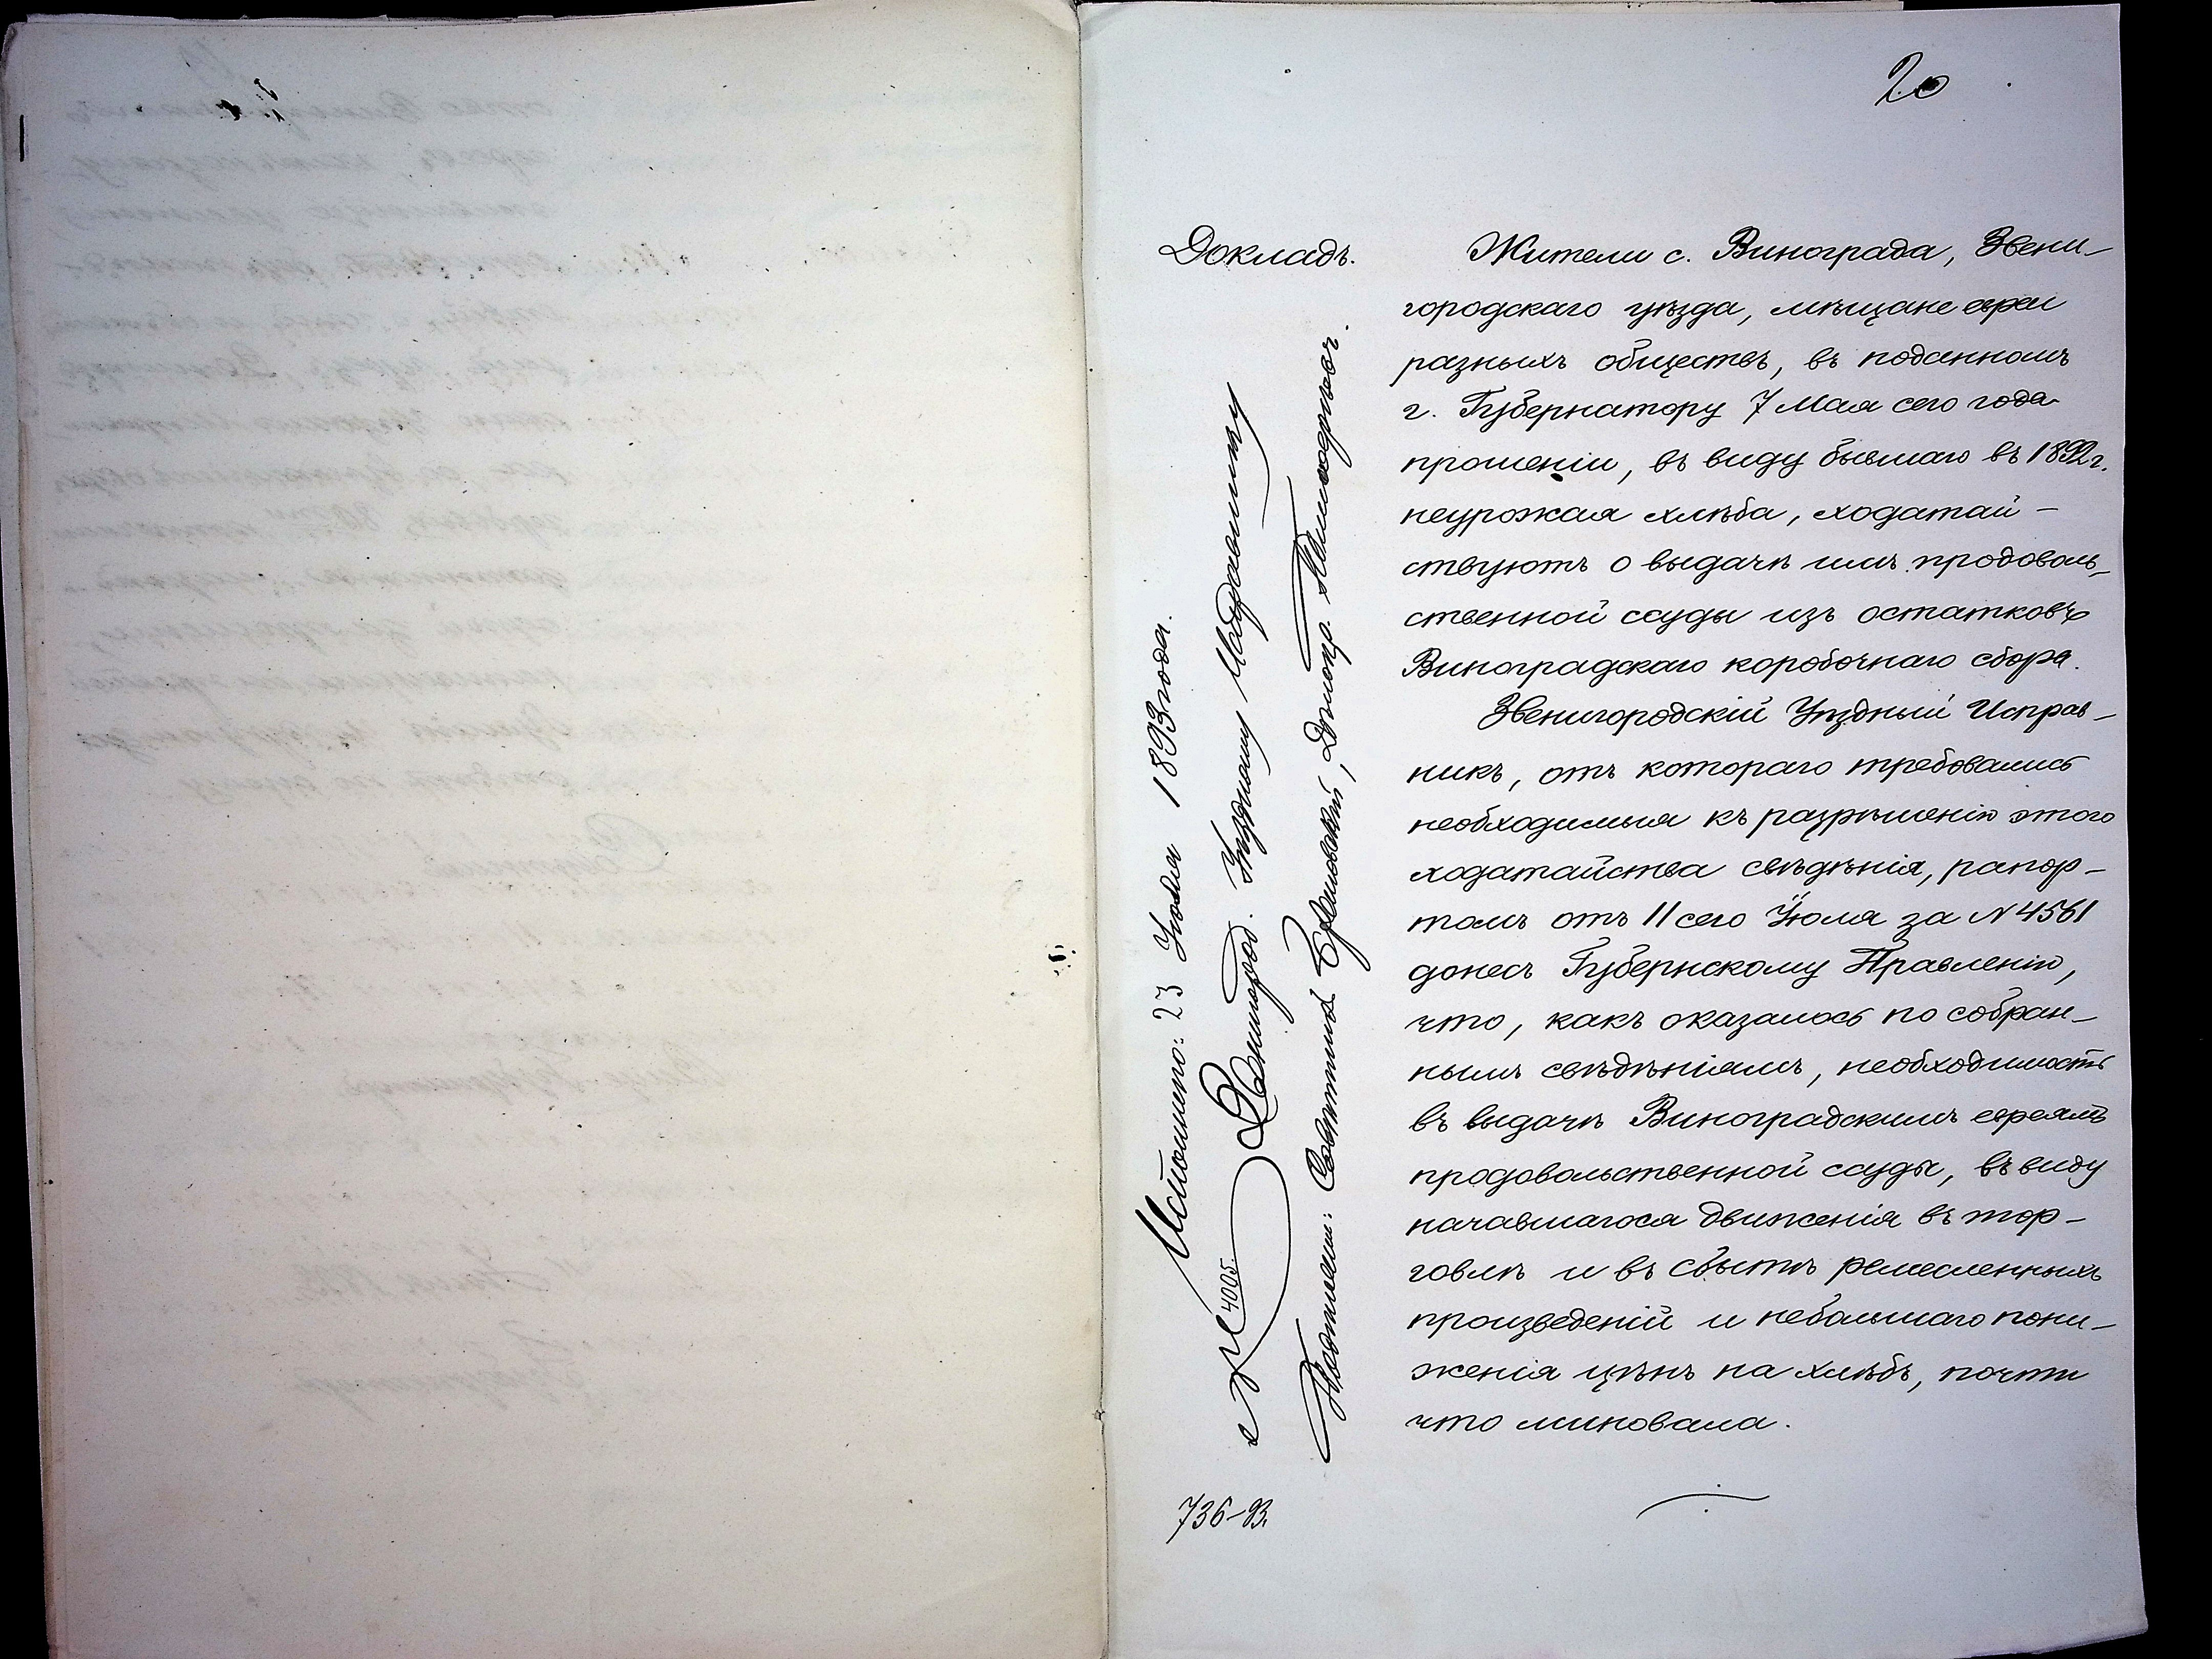 20
Докладъ.
Жители с. Винограда, Звени-
городскаго уѣзда, мѣщане евреи
разныхъ обществъ, въ поданномъ
г. Губернатору 7 Мая сего года
прошеніи, въ виду бывшаго въ 1892 г.
неурожая хлѣба, ходатай-
ствуютъ о выдачѣ имъ продоволь-
ственной ссуды изъ остатковъ
Виноградскаго коробочнаго сбора.
Звенигородскій Уѣздный Исправ-
никъ, отъ котораго требовались
необходимыя къ разрѣшенію этого
ходатайства свѣдѣнія, рапор-
томъ отъ 11 сего Іюля за № 4561
донесъ Губернскому Правленію,
что, какъ оказалось по собран-
нымъ свѣдѣніямъ, необходимость
въ выдачѣ Виноградскимъ евреямъ
продовольственной ссуды, въ виду
начавшагося движенія въ тор-
говлѣ и въ сбытѣ ремесленныхъ
произведеній и небольшаго пони-
женія цѣнъ на хлѣбъ, почти
что миновала.
Исполнено: 23 Іюля 1893 года.
4005. Звенигород. Уѣздному Исправнику
Подписали: Совѣтникъ
736-93.